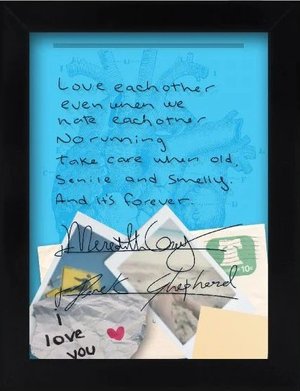 Love eachother
even when we
hate eachother
No running
Take care when old,
Senile and smelly.
And it's forever.
Meredith Grey
Derek Shepherd
10c
I
love
you